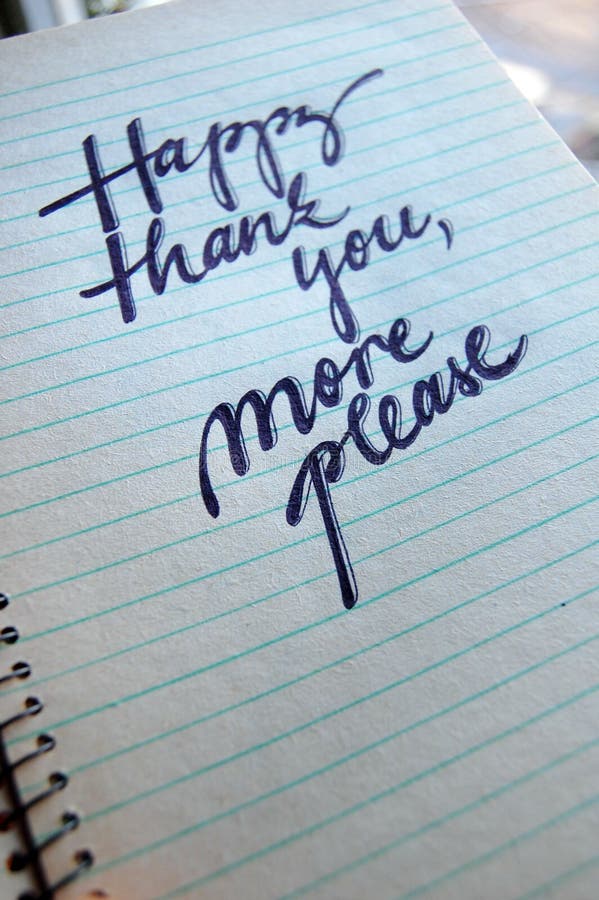 Happy
thank
you,
more
please